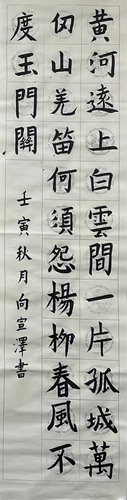 黃河遠上白雲間一片孤城萬
仞山羌笛何須怨楊柳春風不
度玉門關
壬寅秋月向宣澤書